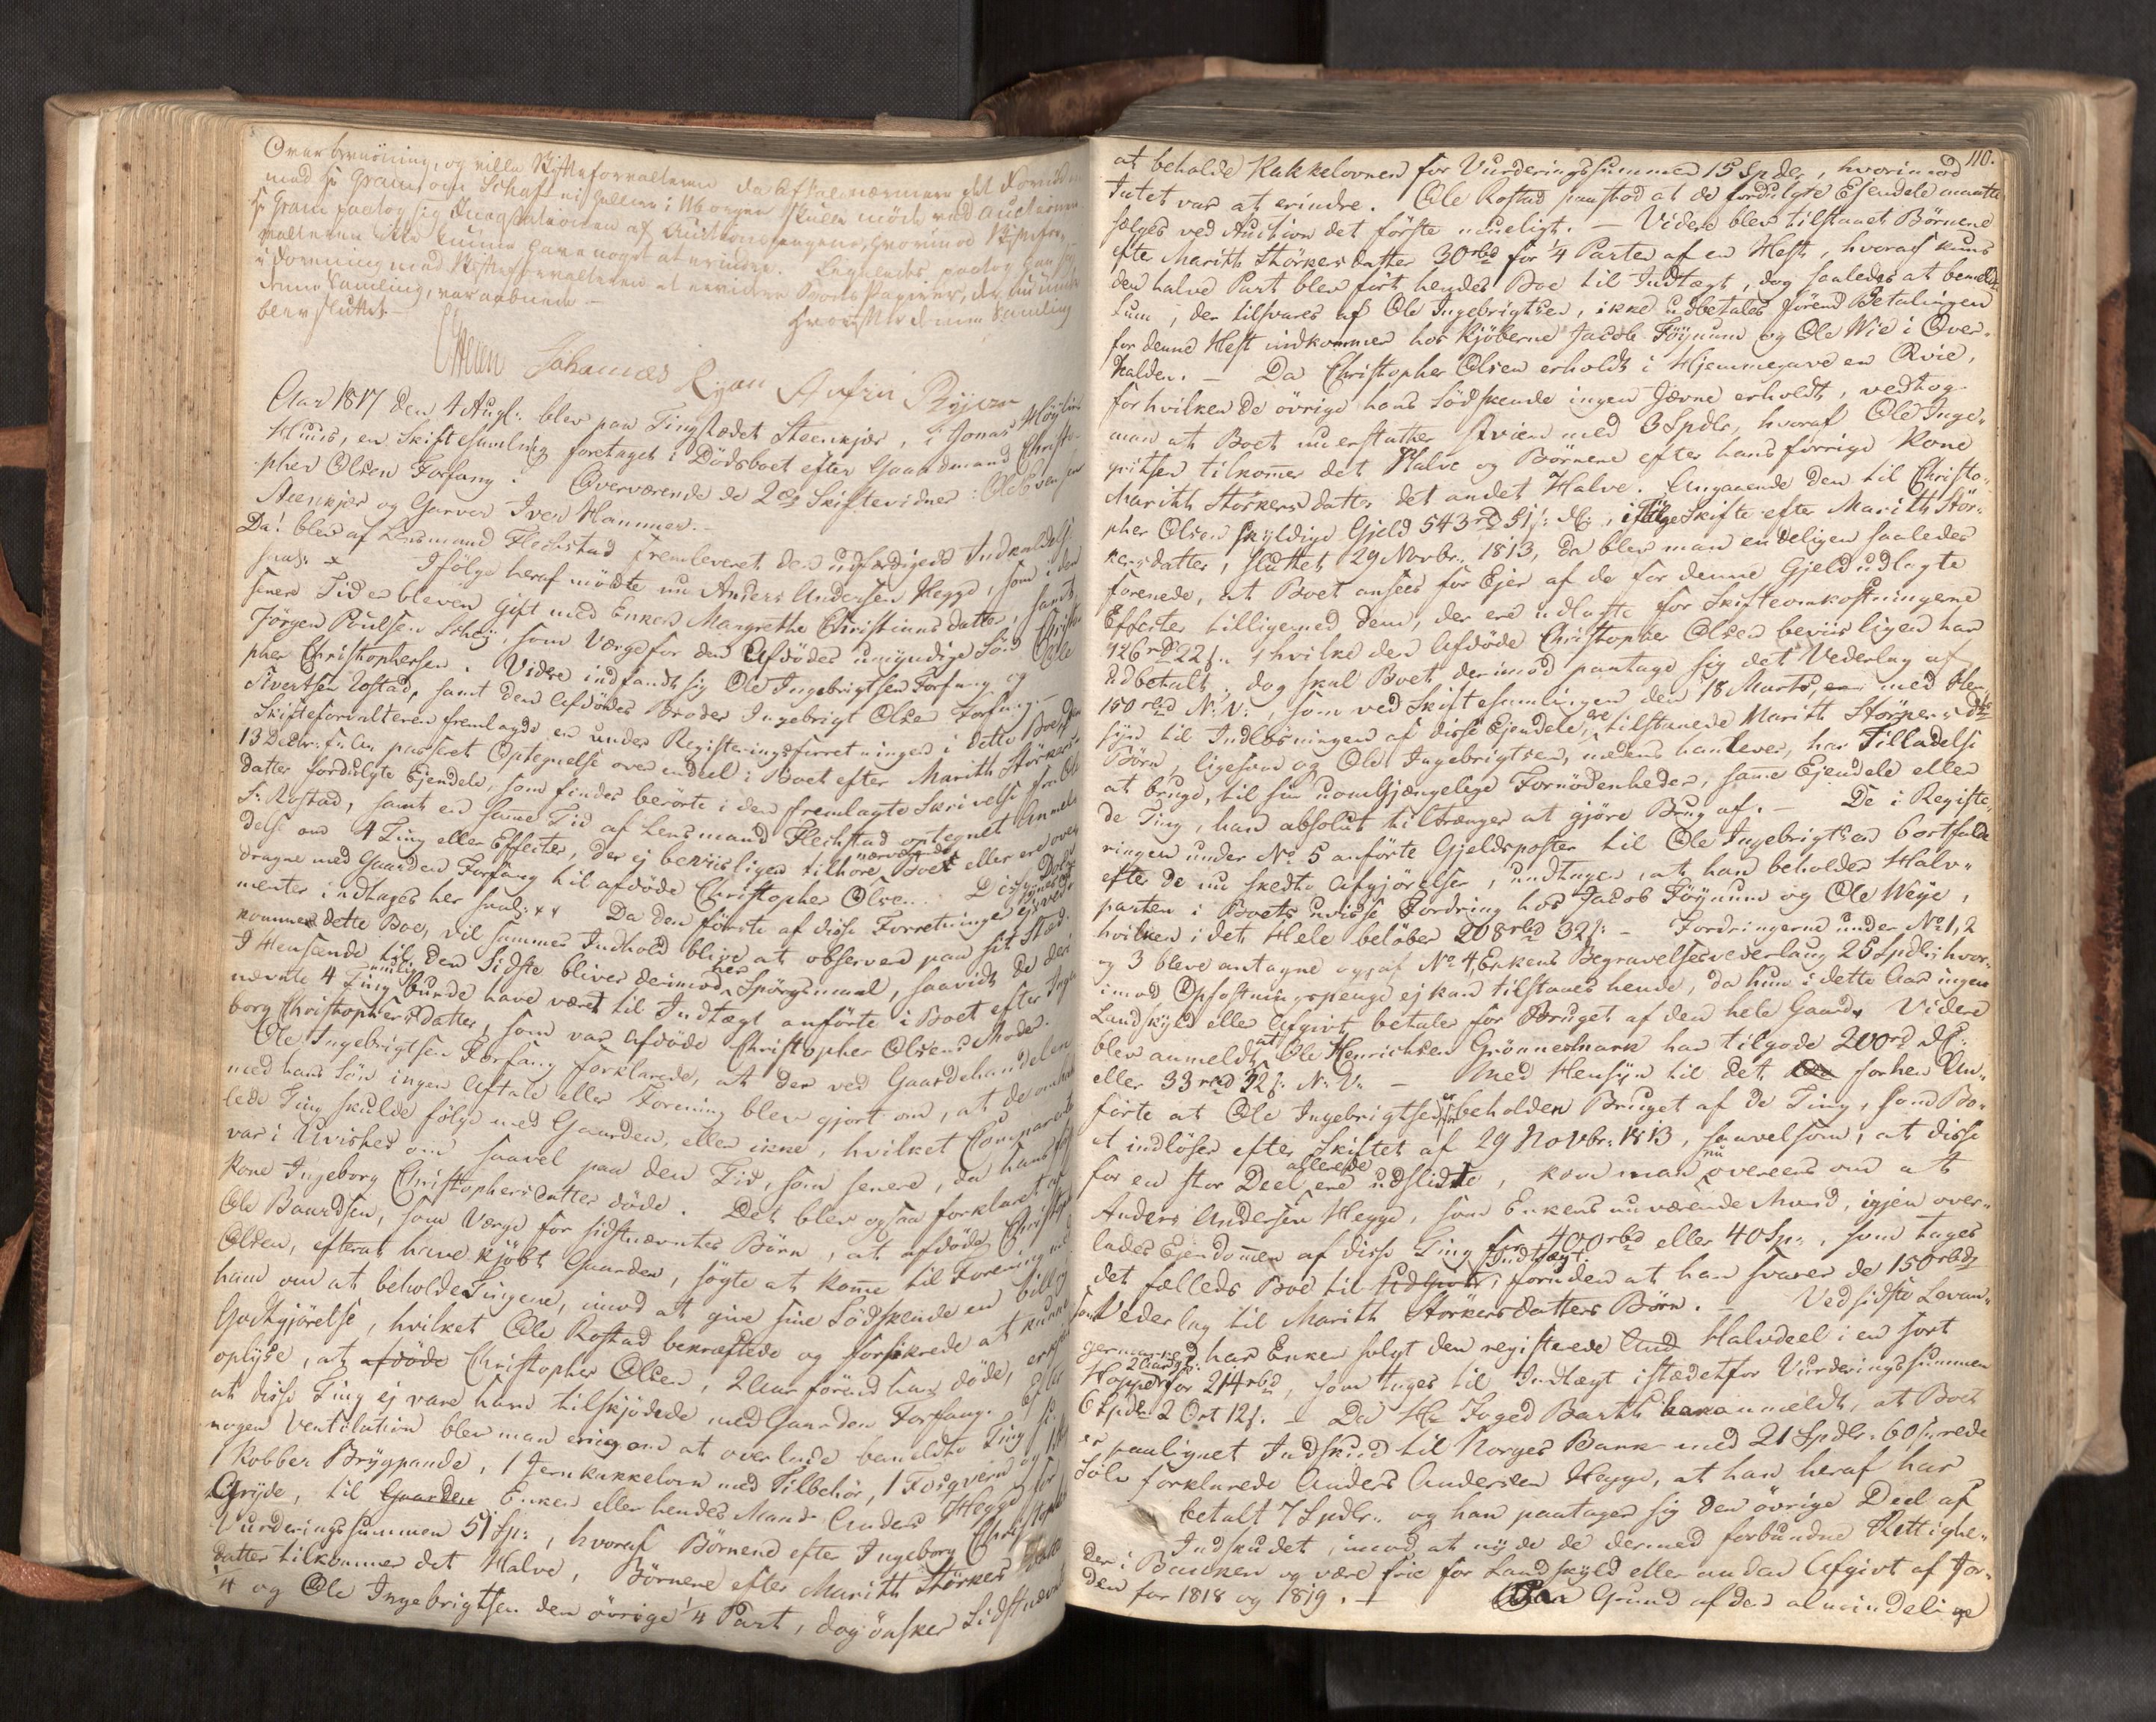 Overbeviisning, og vilde Skifteforvalteren da
med Hr Gram som Schaft
Hr Gram paatog sig Inqvisitionen af Auctionspengene, hvorimod Skiftefor-
valteren ikke kunne have noget at erindre. Ligeledes paatog han sig
i Forening med Skifteforvalteren at revidere Boets Papirer, der nu under
denne Samling, var aabnede. –
blev sluttet. – Hvorefter denne Samling
Johannes Ryan
Aar 1817 den 4 Augt: blev paa Tingstædet Steenkjær, i Jonas Höÿlies
Huus, en Skiftesamling foretaget i Dödsboet efter Gaardmand Christo-
pher Olsen Forfang. Overværende de 2de Skiftevidner: Ole Evensen
Steenkjer og Garver Iver Hammer. –
Da! blev af Lensmand Flekstad fremleveret den udfærdigede Indkaldelse
saal: x Ifölge heraf mödte nu Anders Andersen Hegge, som i den
senere Tid er bleven gift med Enken Margrethe Christinnsdatter, samt
Jörgen Poulsen Schej, som Værge for den Afdödes umyndige Sön Christo
pher Christophersen. Videre indfandt sig Ole Ingebrigtsen Forfang og Ole
Sivertsen Rostad, samt den Afdödes Broder Ingebrigt Olsen Forfang. –
Skifteforvalteren fremlagde en under Registeringsforretningen i dette Boe den
13 Decbr: f: A: passeret Optegnelse over endeel i Boet efter Marith Störkers-
datter fordulgte Ejendele, som findes berörte i den fremlagte Skrivelse fra Ole
S: Rostad, samt en samme Tid af Lensmand Flechstad optegnet Anmel-
delse om 4 Ting eller Effecter, der ej beviisligen tilhöre nærværende Boet eller ere over
dragne med Gaarden Forfang til afdöde Christopher Olsen. Disse Docu
menter indtages her saal: xx Da den förste af disse Forretninger ej ved-
kommer dette Boe, vil sammes Indhold blive at observere paa sit Sted.
I Henseende til den Sidste bliver derimod her Spörgsmaal, saavidt de der
nævnte 4 Ting nemlig burde have været til Indtægt anförte i Boet efter Inge
borg Christophersdatter, som var afdöde Christopher Olsens Moder.
Ole Ingebrigtsen Forfang forklarede, at der ved Gaardehandelen
med hans Sön ingen Aftale eller Forening blev gjort om, at de omhand
lede Ting skulde fölge med Gaarden, eller ikke, hvilket Comparenten
var i Uvished om saavel paa den Tid, som senere, da hans for
Kone Ingeborg Christophersdatter döde. Det blev ogsaa forklaret af
Ole Baardsen, som Værge for sidstnævntes Börn, at afdöde Christoph
Olsen, efterat have kjöbt Gaarden, sögte at komme til Forening med
ham om at beholde Tingene, imod at give sine Södskende en billig
Godtgjörelse, hvilket Ole Rostad bekræftede og forsikrede at kunne
oplyse, at afdöde Christopher Olsen, 2 Aar förend han döde,
at disse Ting ej vare ham tilskjödede med Gaarden Forfang. Efter
nogen Ventilation blev man enig om at overlade bemeldte Ting
1 Kobber Brygpande, 1 Jernkakkelovn med Tilbehör, 1 og
Gryde, til Gaarden Enken eller hendes Mand Anders Hegge for
Vurderingssummen 51 Sp:, hvoraf Börnene efter Ingeborg Christophers
datter tilkommer det Halve, Börnene efter Marith Störkersdatter
¼ og Ole Ingebrigtsen den övrige ¼ Part, dog önsker Sidstnævnte
110.
at beholde Kakkelovnen for Vurderingssummen 15 Spdlr, hvorimod
Intet var at erindre. Ole Rostad paastod at de fordulgte Ejendele maatte
sælges ved Auction det förste mueligt. – Videre blev tilstaaet Börnene
efte Marith Störkersdatter 30 rbd for ¼ Parten af en Hest, hvoraf kuns
den halve Part blev fört hendes Boe til Indtægt, dog saaledes at bemeldte
Sum, der tilsvares af Ole Ingebrigtsen, ikke udbetales förend Betalingen
for denne Hest indkommer hos Kjöberne Jacob Föÿnum og Ole Wie i Over-
halden. – Da Christopher Olsen erholdt i Hjemmegave en Qvie,
for hvilken de övrige hans Södskende ingen Jævne erholdt, vedtog
man at Boet nu erstatter Qvien med 3 Spdlr, hvoraf Ole Inge-
gritsen tilkommer det Halve og Börnene efter hans forrige Kone
Marith Störkersdatter det andet Halve. Angaaende den til Christo-
pher Olsen skyldige Gjeld 543 rd 51 s: D:C:, ifölge Skifte efter Marith Stör-
kersdatter, sluttet 29 Novbr: 1813, da blev man endeligen saaledes
forenede, at Boet ansees for Ejer af de for denne Gjeld udlagte
Effecter tilligemed dem, der ere udlagte for Skifteomkostningerne
126 rd 22 s:, hvilke den Afdöde Christopher Olsen beviisligen har
udbetalt, dog skal Boet derimod paatage sig det Vederlag af
150 rbd N: V:, som ved Skiftesamlingen den 18 Marts, med Hen-
syn til Indlösningen af disse Ejendele, ere tilstaaede Marith Störkers dts
Börn, ligesom og Ole Ingebrigtsen, medens han lever, har Tilladelse
at bruge, til sin uomgjængelige Fornödenheder, samme Ejendele eller
de Ting, han absolut tiltrænger at gjöre Brug af. – De i Registe-
ringen under No 5 anförte Gjeldsposter til Ole Ingebrigtsen bortfalde
efter de nu skedte Afgjörelser, undtagen, at han beholder Halv-
parten i Boets uvisse Fordring hos Jacob Föÿnum og Ole Weÿe,
hvilken i det Hele belöber 208 rbd 32 s: – Fordringerne under No 1, 2
og 3 bleve antagne og af No 4, Enkens Begravelsesvederlaug 25 Spdlr: hvor-
imod Opfostringspenge ej kan tilstaaes hende, da hun i dette Aar ingen
Landskyld eller Afgivt betaler for Bruget af den hele Gaard. Videre
blev anmeldt at Ole Henrichsen Grönnesmark har tilgode 200 rd D:C:
eller 33 rbd 32 s: N: V: – Med Hensyn til det forhen An-
förte at Ole Ingebrigtsen er forbeholden Bruget af de Ting, som Bo-
et indlöser efter Skiftet af 29 Novbr: 1813, saavelsom, at disse
for en stor Deel allerede ere udslidte, kom man nu overeens om at
Anders Andersen Hegge, som Enkens nuværende Mand, igjen over-
lades Ejendommen af disse Ting for 400 rbd eller 40 Sp:, som tages
det fælleds Boe til Indtægt, foruden at han svarer de 150 rbd
som Vederlag til Marith Störkersdatters Börn. – Ved sidste Levan-
germarked har Enken solgt den registerede Halvdeel i en sort
Hoppe 2 Aar gl: for 214 rbd, som tages til Indtægt istædetfor Vurderingssummen
6 Spdlr 2 Ort 12 s: – Da Hr Foged Barth har anmeldt, at Boet
er paalignet Indskud til Norges Bank med 21 Spdlr 60 s: rede
Sölv forklarede Anders Andersen Hegge, at han heraf har
betalt 7 Spdlr: og han paatager sig den övrige Deel af
Indskudet, imod at nyde de dermed forbundne Rettighe-
der i Banken og være frie for Landskyld eller anden Afgivt af Jor-
den for 1818 og 1819. – Paa Grund af den almindelige